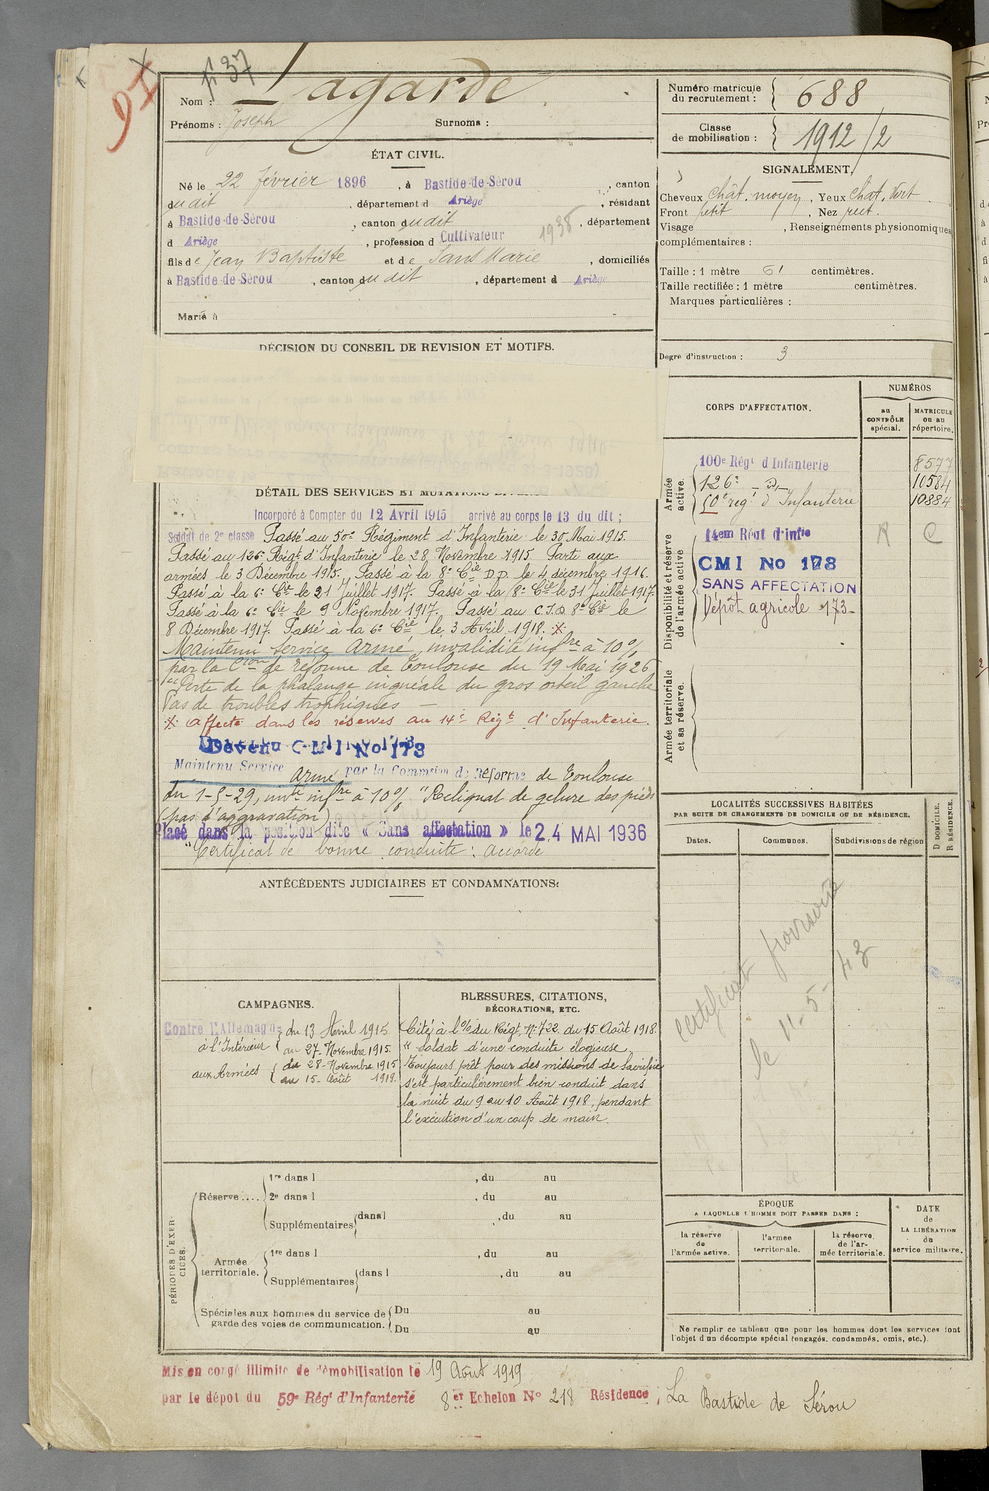 97
n° 37
Nom : Lagarde
Prénoms : Joseph Surnoms :
Numéro matricule du recrutement : 688
Classe de mobilisation : 1912/2
ÉTAT CIVIL.
Né le 22 février 1896, à Bastide-de-Sérou, canton
dudit, département d Ariège, résidant
à Bastide-de-Sérou, canton dudit, département
d Ariège, profession d Cultivateur 1938
fils de Jean Baptiste et de Sans Marie, domiciliés
à Bastide-de-Sérou, canton dudit, département d Ariège
Marié à
SIGNALEMENT.
Cheveux chât. moyen, Yeux chat. vert
Front petit, Nez rect.
Visage , Renseignements physionomiques
complémentaires :
Taille : 1 mètre 61 centimètres.
Taille rectifiée : 1 mètre centimètres.
Marques particulières :
Degré d'instruction : 3
DÉCISION DU CONSEIL DE REVISION ET MOTIFS.
DÉTAIL DES SERVICES ET MUTATIONS
Incorporé à Compter du 12 Avril 1915 arrivé au corps le 13 du dit ;
Soldat de 2e classe Passé au 50e Régiment d'Infanterie le 30 Mai 1915.
Passé au 126e Régt d'Infanterie le 28 Novembre 1915. Parti aux
armées le 3 Décembre 1915. Passé à la 8e Cie D.D. le 4 décembre 1916.
Passé à la 6e Cie le 21 Juillet 1917. Passé à la 8e Cie le 31 juillet 1917.
Passé à la 6e Cie le 9 Novembre 1917. Passé au C.I.D. 8e Cie le
8 Décembre 1917. Passé à la 6e Cie le 3 Avril 1918. X
Maintenu service armé, invalidité infre à 10%
par la Con de réforme de Toulouse du 19 Mai 1926
Perte de la phalange inguéale du gros orteil gauche
Pas de troubles trophiques —
X affecté dans les réserves au 14e Régt d'Infanterie.
Devenu C M I No 173
Maintenu Service armé par la Commion de Réforme de Toulouse
du 1-5-29, invté infre à 10% "Reliquat de gelure des pieds
(pas d'aggravation)
Placé dans la position dite « Sans affectation » le 24 MAI 1936
"Certificat de bonne conduite : accordé
CORPS D'AFFECTATION.
NUMÉROS
au CONTRÔLE spécial.
MATRICULE ou au répertoire.
Armée active.
100e Régt d'Infanterie 8577
126e -d- 10584
50e rég' d'Infanterie 10884
Disponibilité et réserve de l'armée active
14em Régt d'Infie R C
CMI No 178
SANS AFFECTATION
Dépôt agricole 173
Armée territoriale et sa réserve.
LOCALITÉS SUCCESSIVES HABITÉES
PAR SUITE DE CHANGEMENTS DE DOMICILE OU DE RÉSIDENCE.
Dates. Communes. Subdivisions de région
D DOMICILE. R RÉSIDENCE.
certificat provisoire
le 11-5-43
ANTÉCÉDENTS JUDICIAIRES ET CONDAMNATIONS:
CAMPAGNES.
Contre l'Allemagne du 13 Avril 1915
à l'Intérieur au 27 Novembre 1915.
aux Armées du 28 Novembre 1915
au 15 Août 1919.
BLESSURES, CITATIONS,
DÉCORATIONS, ETC.
Cité à l'o/ du Régt N° 722 du 15 Août 1918.
"Soldat d'une conduite élogieuse,
Toujours prêt pour des missions de sacrifice
s'est particulièrement bien conduit dans
la nuit du 9 au 10 Août 1918, pendant
l'exécution d'un coup de main.
PÉRIODES D'EXERCICES.
Réserve.... 1re dans l , du au
2e dans l , du au
Supplémentaires dans l , du au
Armée territoriale. 1re dans l , du au
Supplémentaires dans l , du au
Spéciales aux hommes du service de garde des voies de communication. Du au
Du au
ÉPOQUE
A LAQUELLE L'HOMME DOIT PASSER DANS :
la réserve de l'armée active.
l'armée territoriale.
la réserve de l'armée territoriale.
DATE de LA LIBÉRATION du service militaire.
Ne remplir ce tableau que pour les hommes dont les services font
l'objet d'un décompte spécial (engagés, condamnés, omis, etc.).
Mis en congé illimité de démobilisation le 19 Août 1919
par le dépot du 59e Régt d'Infanterie 8er Echelon N° 218 Résidence : La Bastide de Sérou